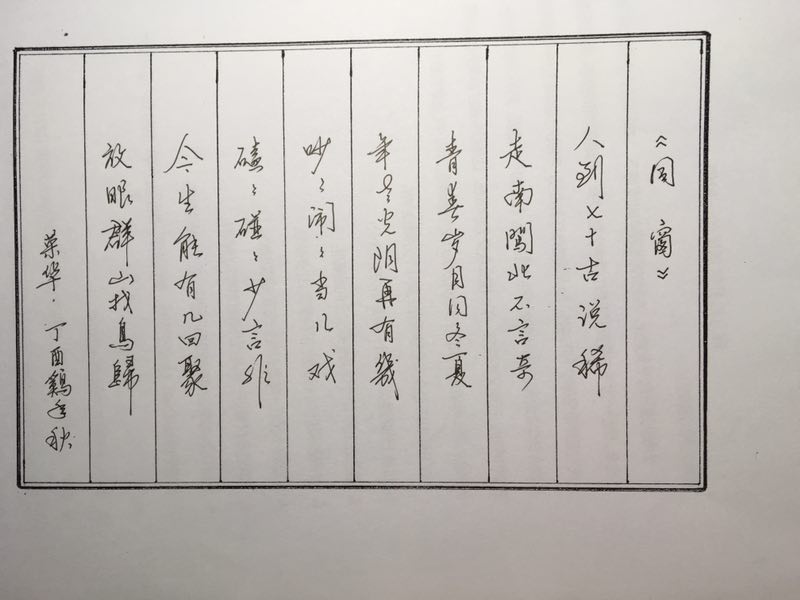 《同窗》
人到七十古说稀
走南闯北不言奇
青春岁月同冬夏
年老光阴再有幾
吵々闹々当儿戏
磕々碰々少言维
今生能有几回聚
放眼群山找鳥歸
荣华·丁酉鷄年秋